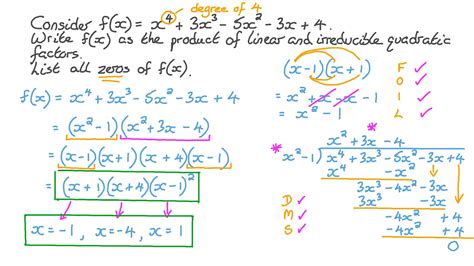 degree of 4
Consider f(x) = x⁴ + 3x³ - 5x² - 3x + 4.
Write f(x) as the product of linear and irreducible quadratic
factors.
List all zeros of f(x).
f(x) = x⁴ + 3x³ - 5x² - 3x + 4
= (x² - 1)(x² + 3x - 4)
= (x - 1)(x + 1)(x + 4)(x - 1)
= (x + 1)(x + 4)(x - 1)²
x = -1, x = -4, x = 1
(x - 1)(x + 1)
= x² + x - x - 1
= x² - 1
F ✓
O ✓
I ✓
L ✓
* x² + 3x - 4
* x² - 1) x⁴ + 3x³ - 5x² - 3x + 4
x⁴ - x²
3x³ - 4x² - 3x
3x³ - 3x
- 4x² + 4
- 4x² + 4
0
D ✓
M ✓
S ✓